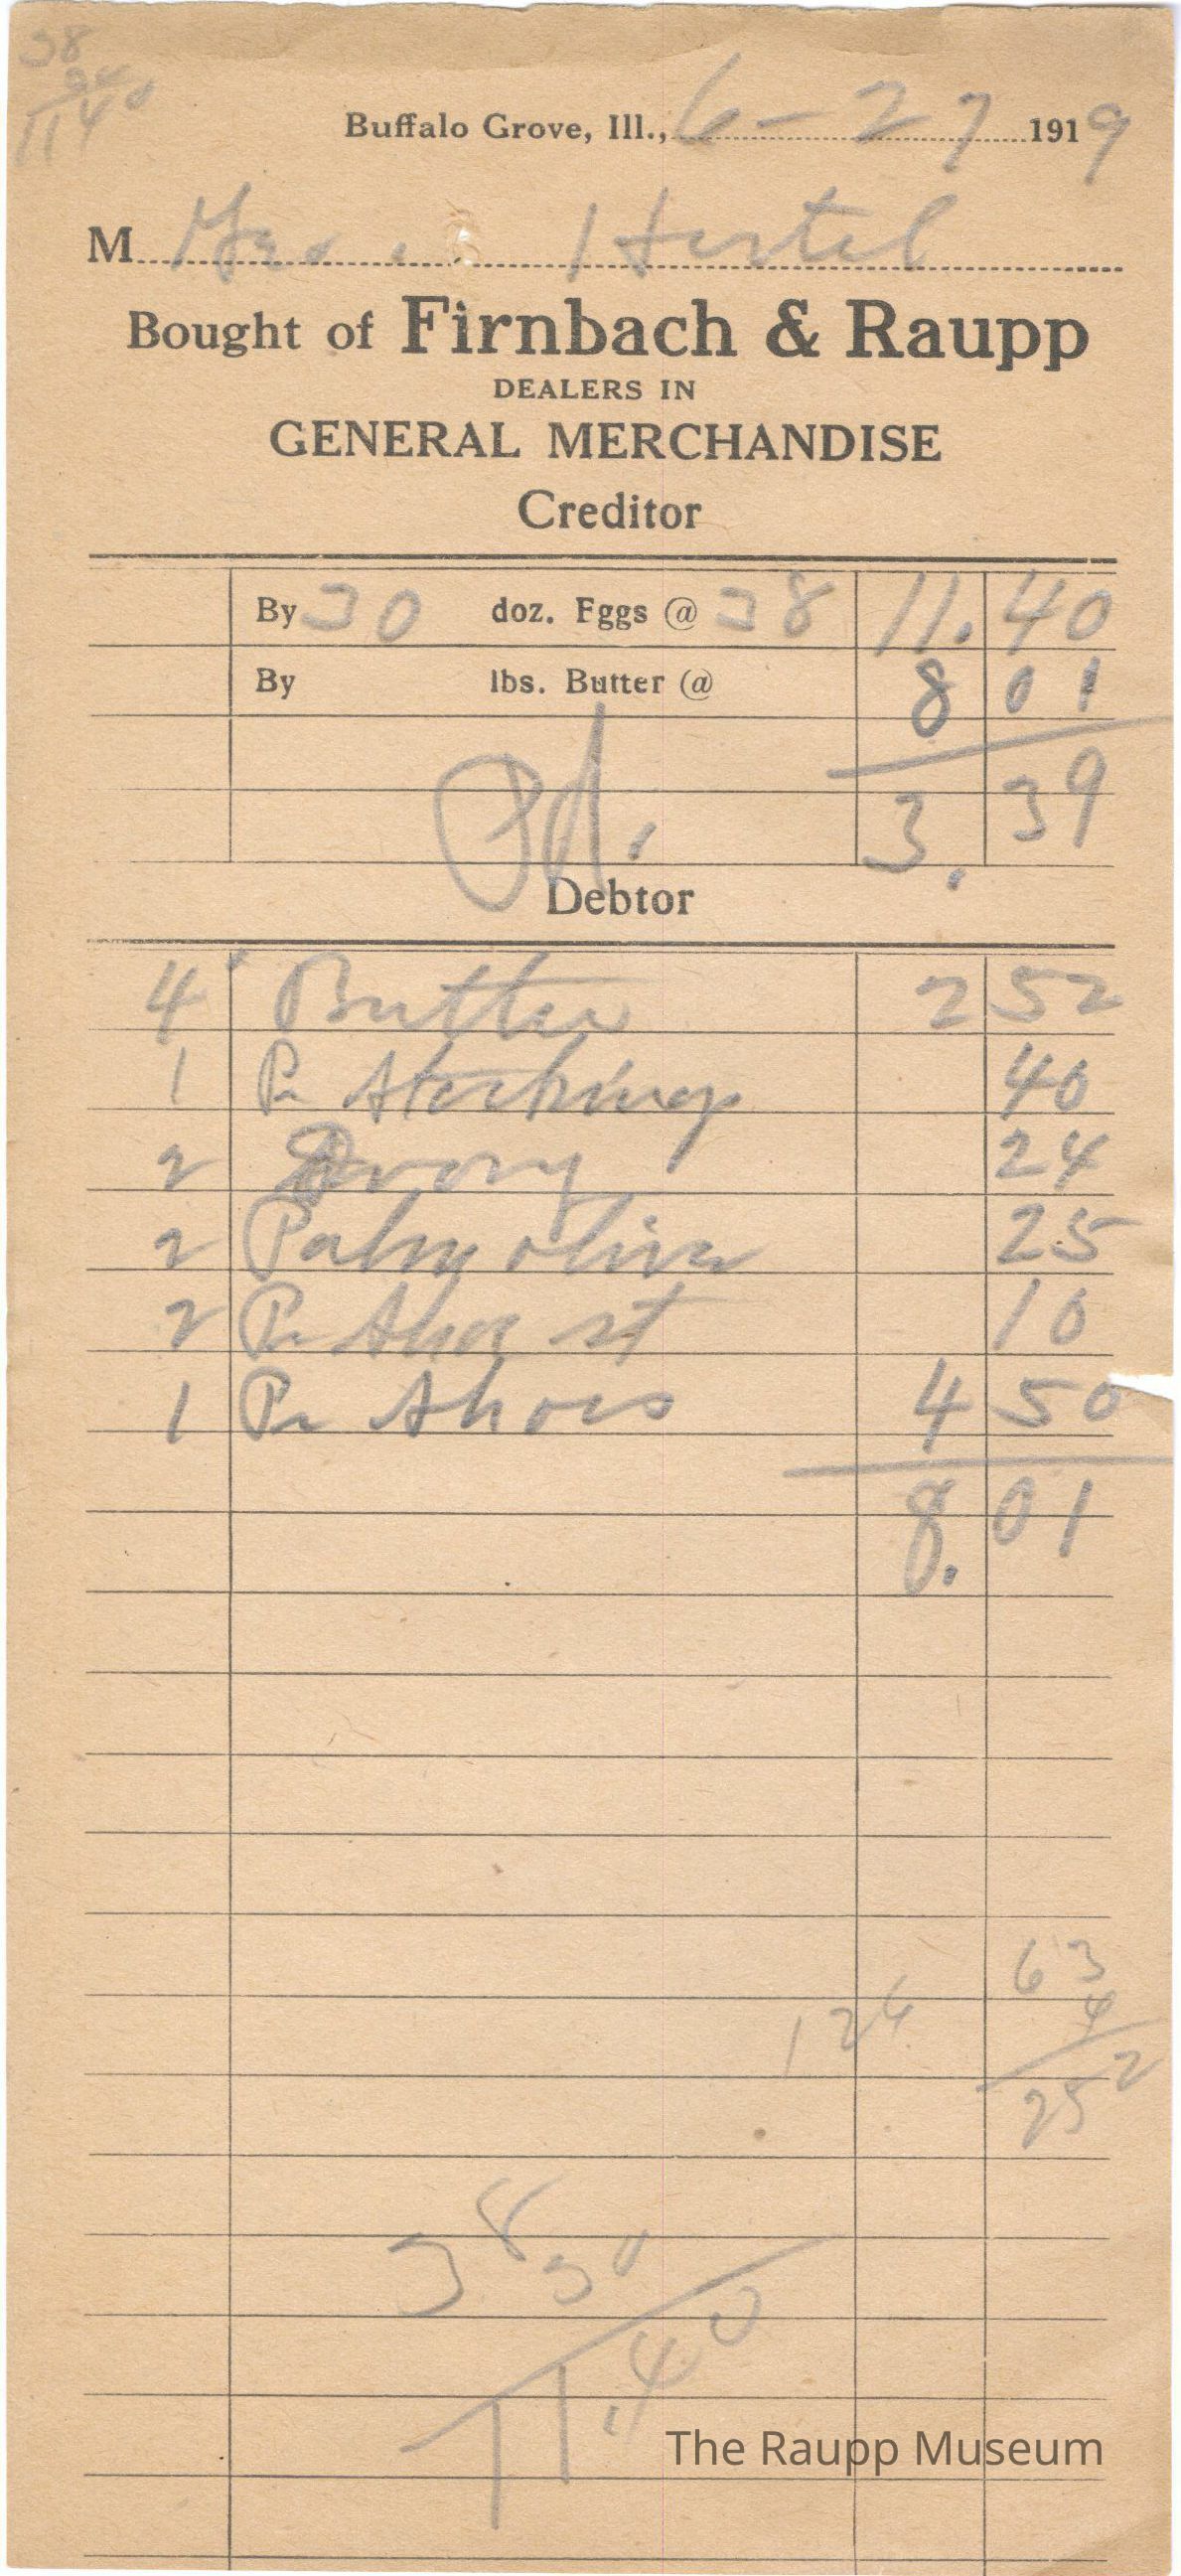 38
30
11 40
Buffalo Grove, Ill., 6-27 1919
M Hertel
Bought of Firnbach & Raupp
DEALERS IN
GENERAL MERCHANDISE
Creditor
By 30 doz. Eggs @ 38 11. 40
By lbs. Butter @ 8 01
3. 39
Pd.
Debtor
4 Butter 2 52
1 Pr Stockings 40
2 Ivory 24
2 Palm olive 25
2 Pr Shoe st 10
1 Pr Shoes 4 50
8. 01
63
4
126
252
38
30
11.40
The Raupp Museum